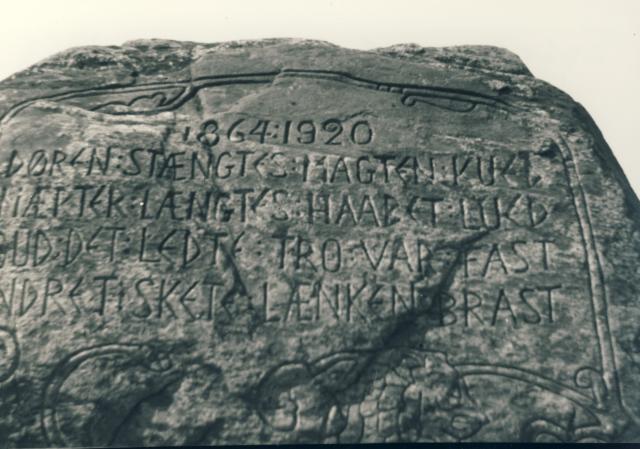 1864:1920
DØREN:STÆNGTES:MAGTEN:KUED
HIÆRTER:LÆNGTES:HAABET:LUED
GUD:DET:LEDTE:TRO:VAR:FAST
UNDRET:SKETE:LÆNKEN:BRAST